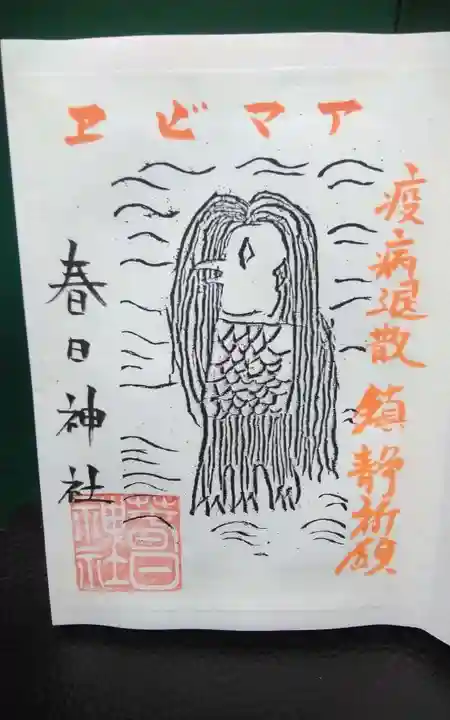 アマビヱ
疫病退散 鎮静祈願
春日神社
春日神社